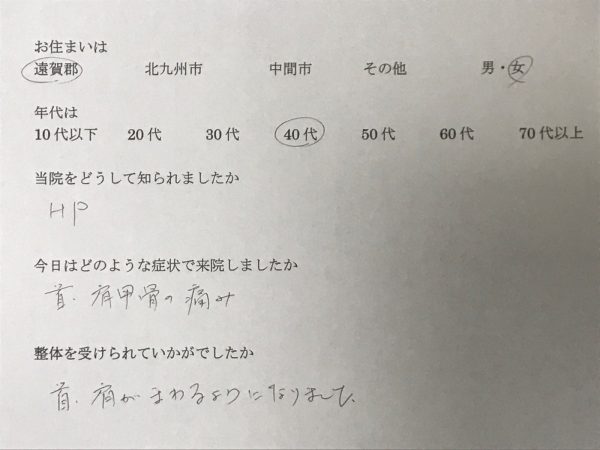 お住まいは
遠賀郡 北九州市 中間市 その他 男・女
年代は
10代以下 20代 30代 40代 50代 60代 70代以上
当院をどうして知られましたか
HP
今日はどのような症状で来院しましたか
首・肩甲骨の痛み
整体を受けられていかがでしたか
首・肩がまわるようになりました。